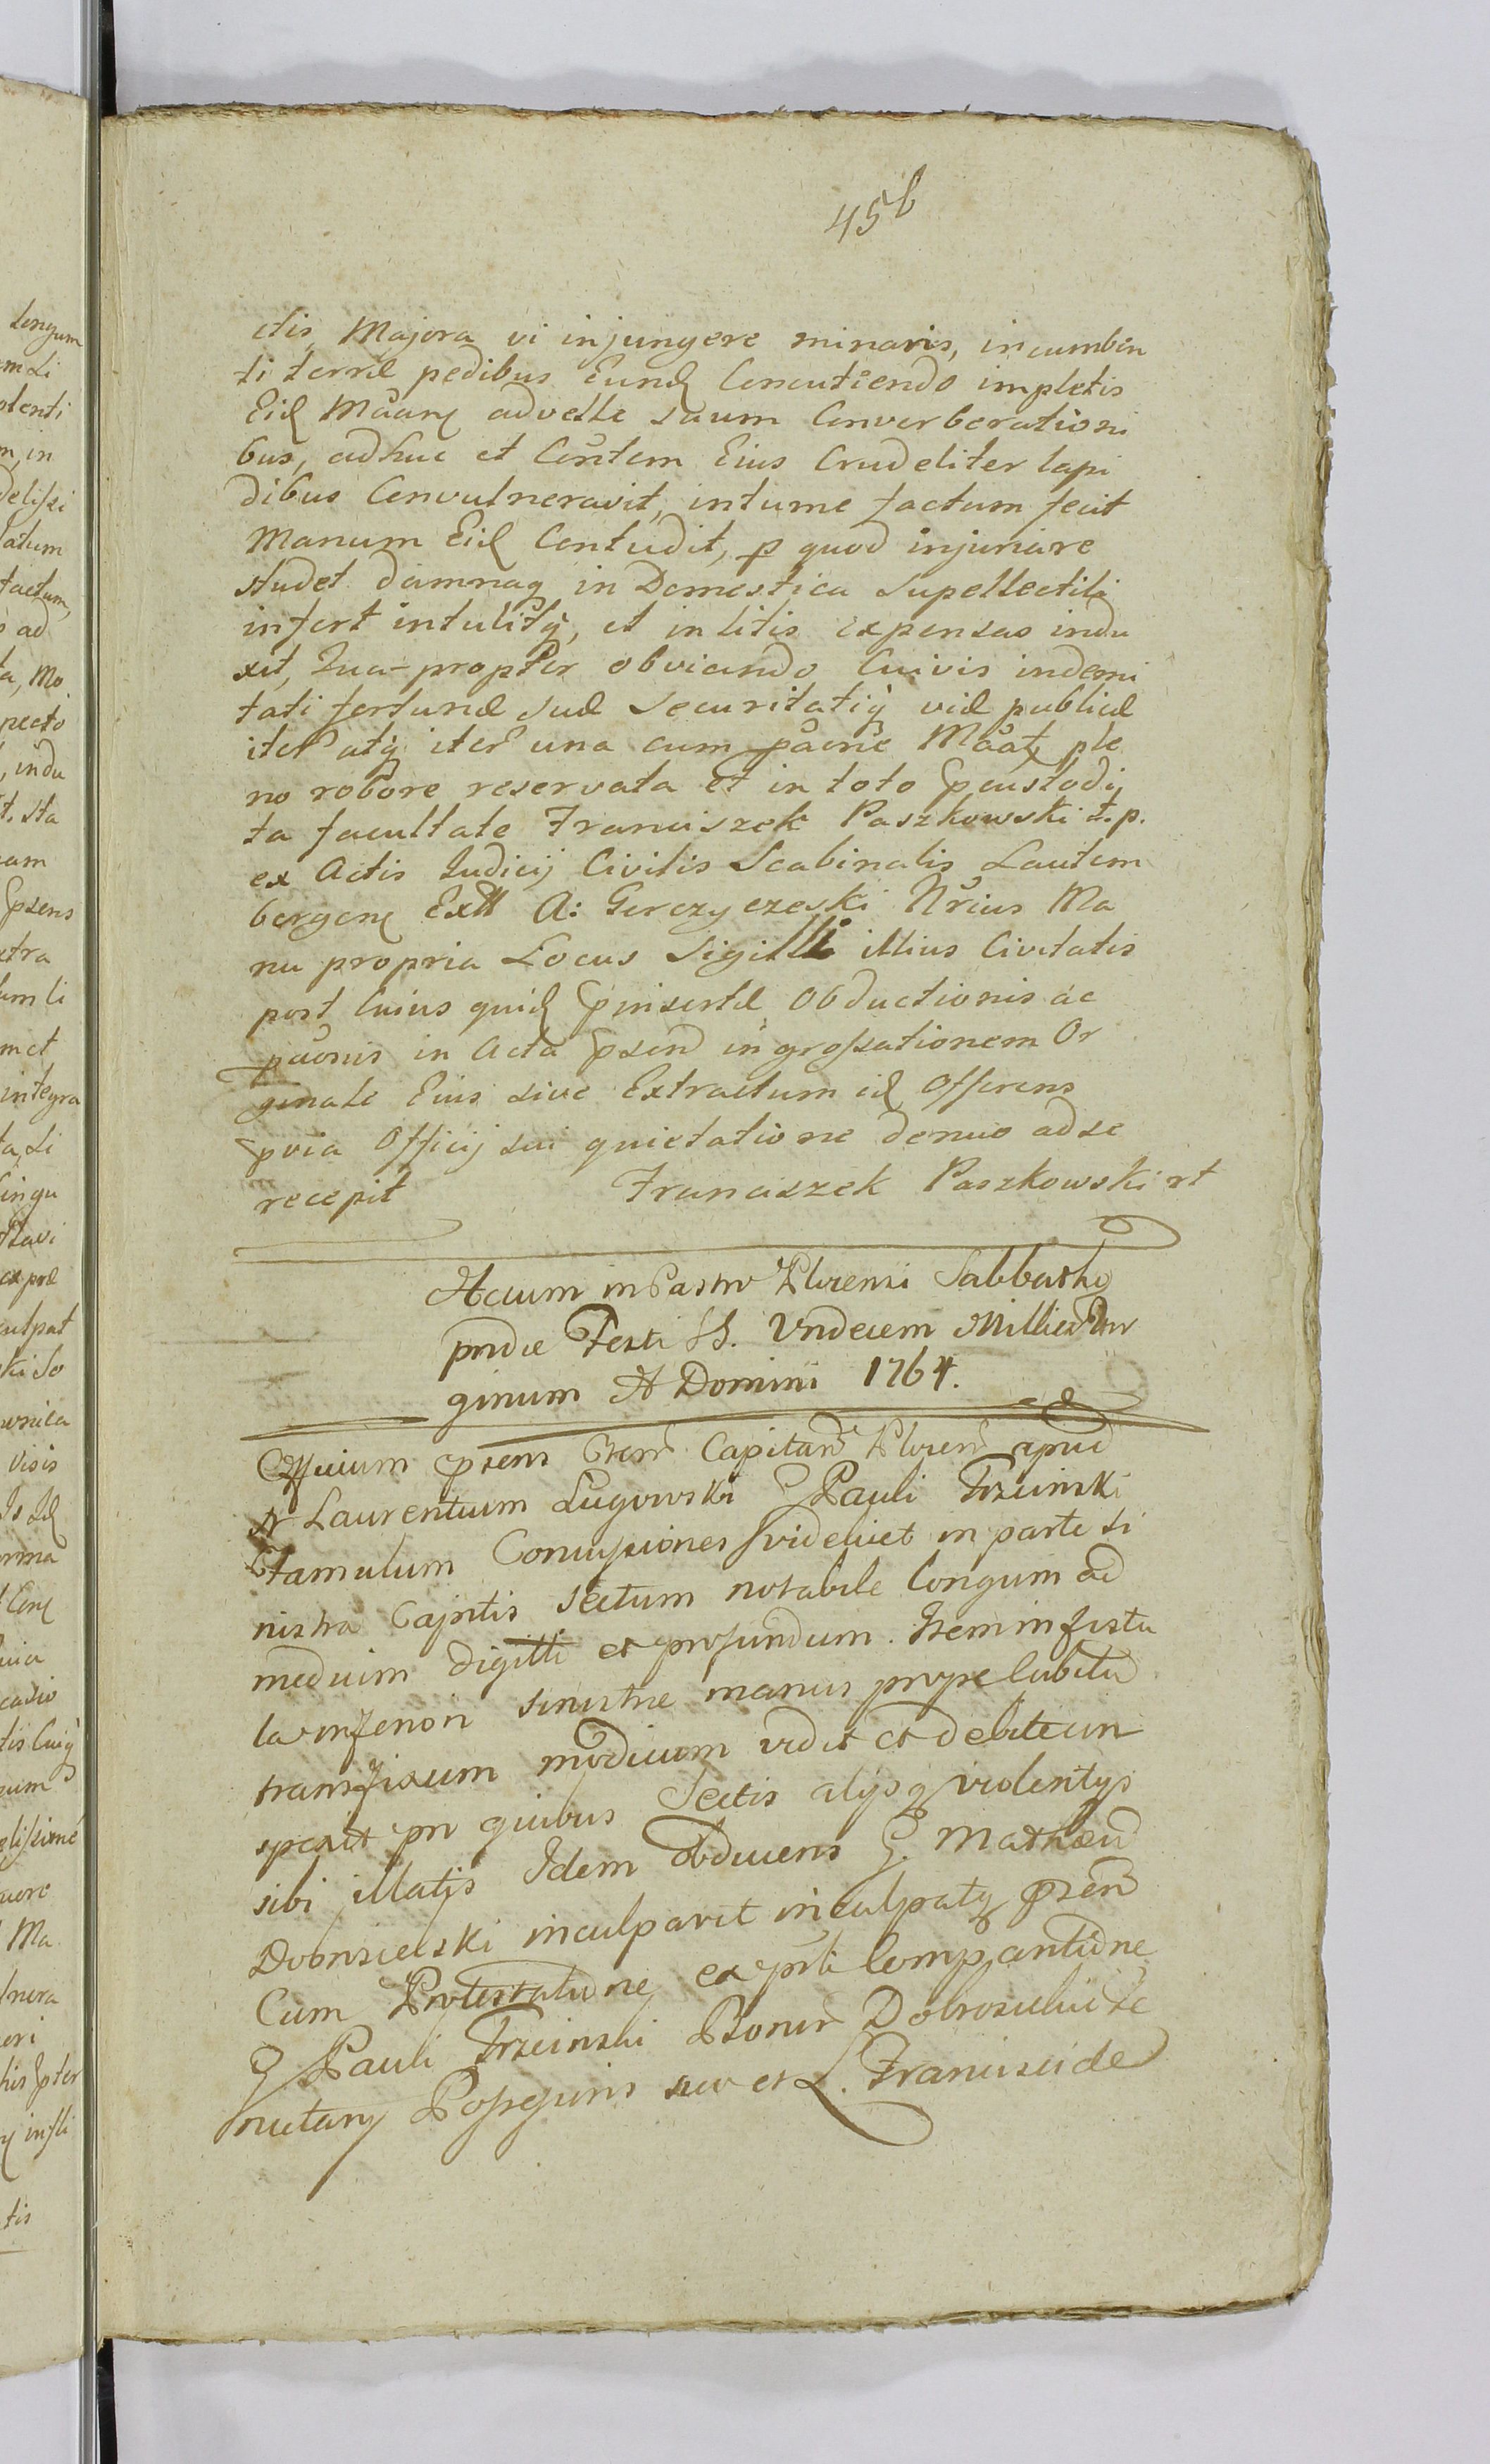 45b
ctis Majora vi injungere minavis, incumben
ti terræ pedibus Eunđ Concutiendo impletis
Eiđ Māarę advelle suum Converberationi
bus, adhuc et Contem Eius Crudeliter lapi
dibus Convulneravit, intume factum fecit
Manum Eiđ Contudit, p quod injuriare
studet damnaq in Domestica Supellectili
infert intulitq, et in litis expensas indu
xit, Qua-propter obviando Cuivis indemi
tati fortunæ suæ Securitatiq viæ publicæ
iter atq iter una cum pāone Māatę ple
no robore reservata et in toto pcustodi
ta facultate Franciszek Paszkowski t.p.
ex Actis Judicij Civilis Scabinalis Lautem
bergenę Extt A: Gerczyczeski Nrius Ma
nu propria Locus Sigilli illius Civitatis
post Cuius quiđ pinsertæ Obductionis ac
pāonis in Acta psend ingrossationem Or
ginale Eius sive Extractum iđ Offerens
pvia Officij sui quietatione denuo ad se
recepit Franciszek Paszkowski rt
Actum in Castro Plocensi Sabbatho
pridie Festi SS. Undecem Millie Vir
ginum A Domini 1764.
Officium psens Capitan Plocen apud
N Laurentium Lugowski G Pauli Trzcinski
Famulum Concussiones videlicet in parte si
nistra Capitis Sectum notabile longum ad
medium digitti et profundum. Item in fistu
la inferiori sinistræ manus prope Cubitum
transfixum modicum vidit et debite con
spexit pro quibus Sectis alijsq violentijs
sibi illatis Idem Obducens G. Mathæu
Dobrsielski inculpavit inculpatq psen
Cum Protestatione ex prti Comparitione
G Pauli Trzcinski Bonor Dobrosielice
nuetany Possessoris suo et L. Francisci de